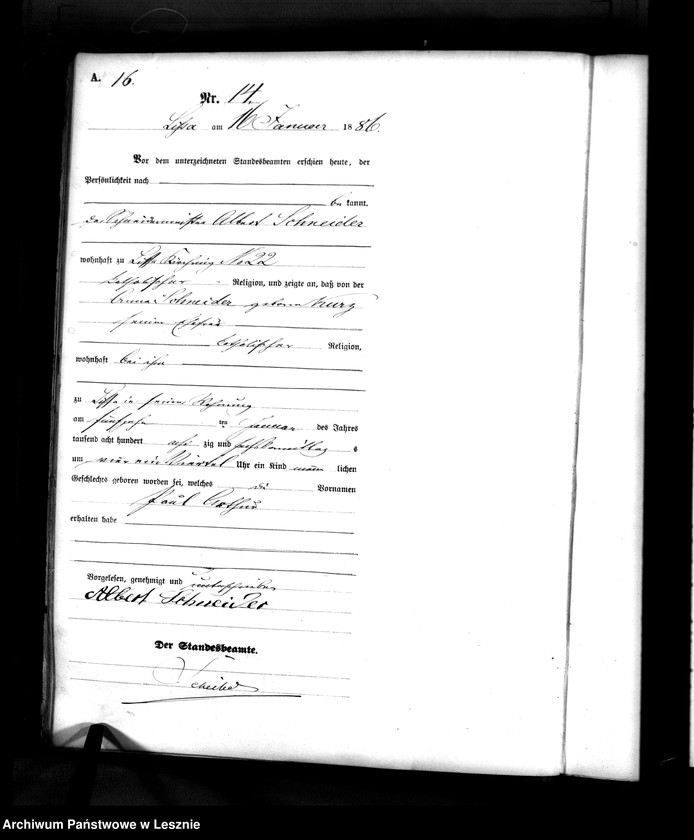 A. 16.
Nr. 14.
Lissa am 16 Januar 1886.
Vor dem unterzeichneten Standesbeamten erschien heute, der
Persönlichkeit nach
be kannt,
der Schneidermeister Albert Schneider
wohnhaft zu Lissa No 22
katholischer Religion, und zeigte an, daß von der
Anna Schneider geborene Kurz
seiner Ehefrau
katholischer Religion,
wohnhaft bei ihm
zu Lissa in seiner Wohnung
am fünfzehn ten Januar des Jahres
tausend acht hundert acht zig und sechs Vormittags
um vier ein Viertel Uhr ein Kind männ lichen
Geschlechts geboren worden sei, welches die Vornamen
Paul Arthur
erhalten habe
Vorgelesen, genehmigt und unterschrieben
Albert Schneider
Der Standesbeamte.
Archiwum Państwowe w Lesznie